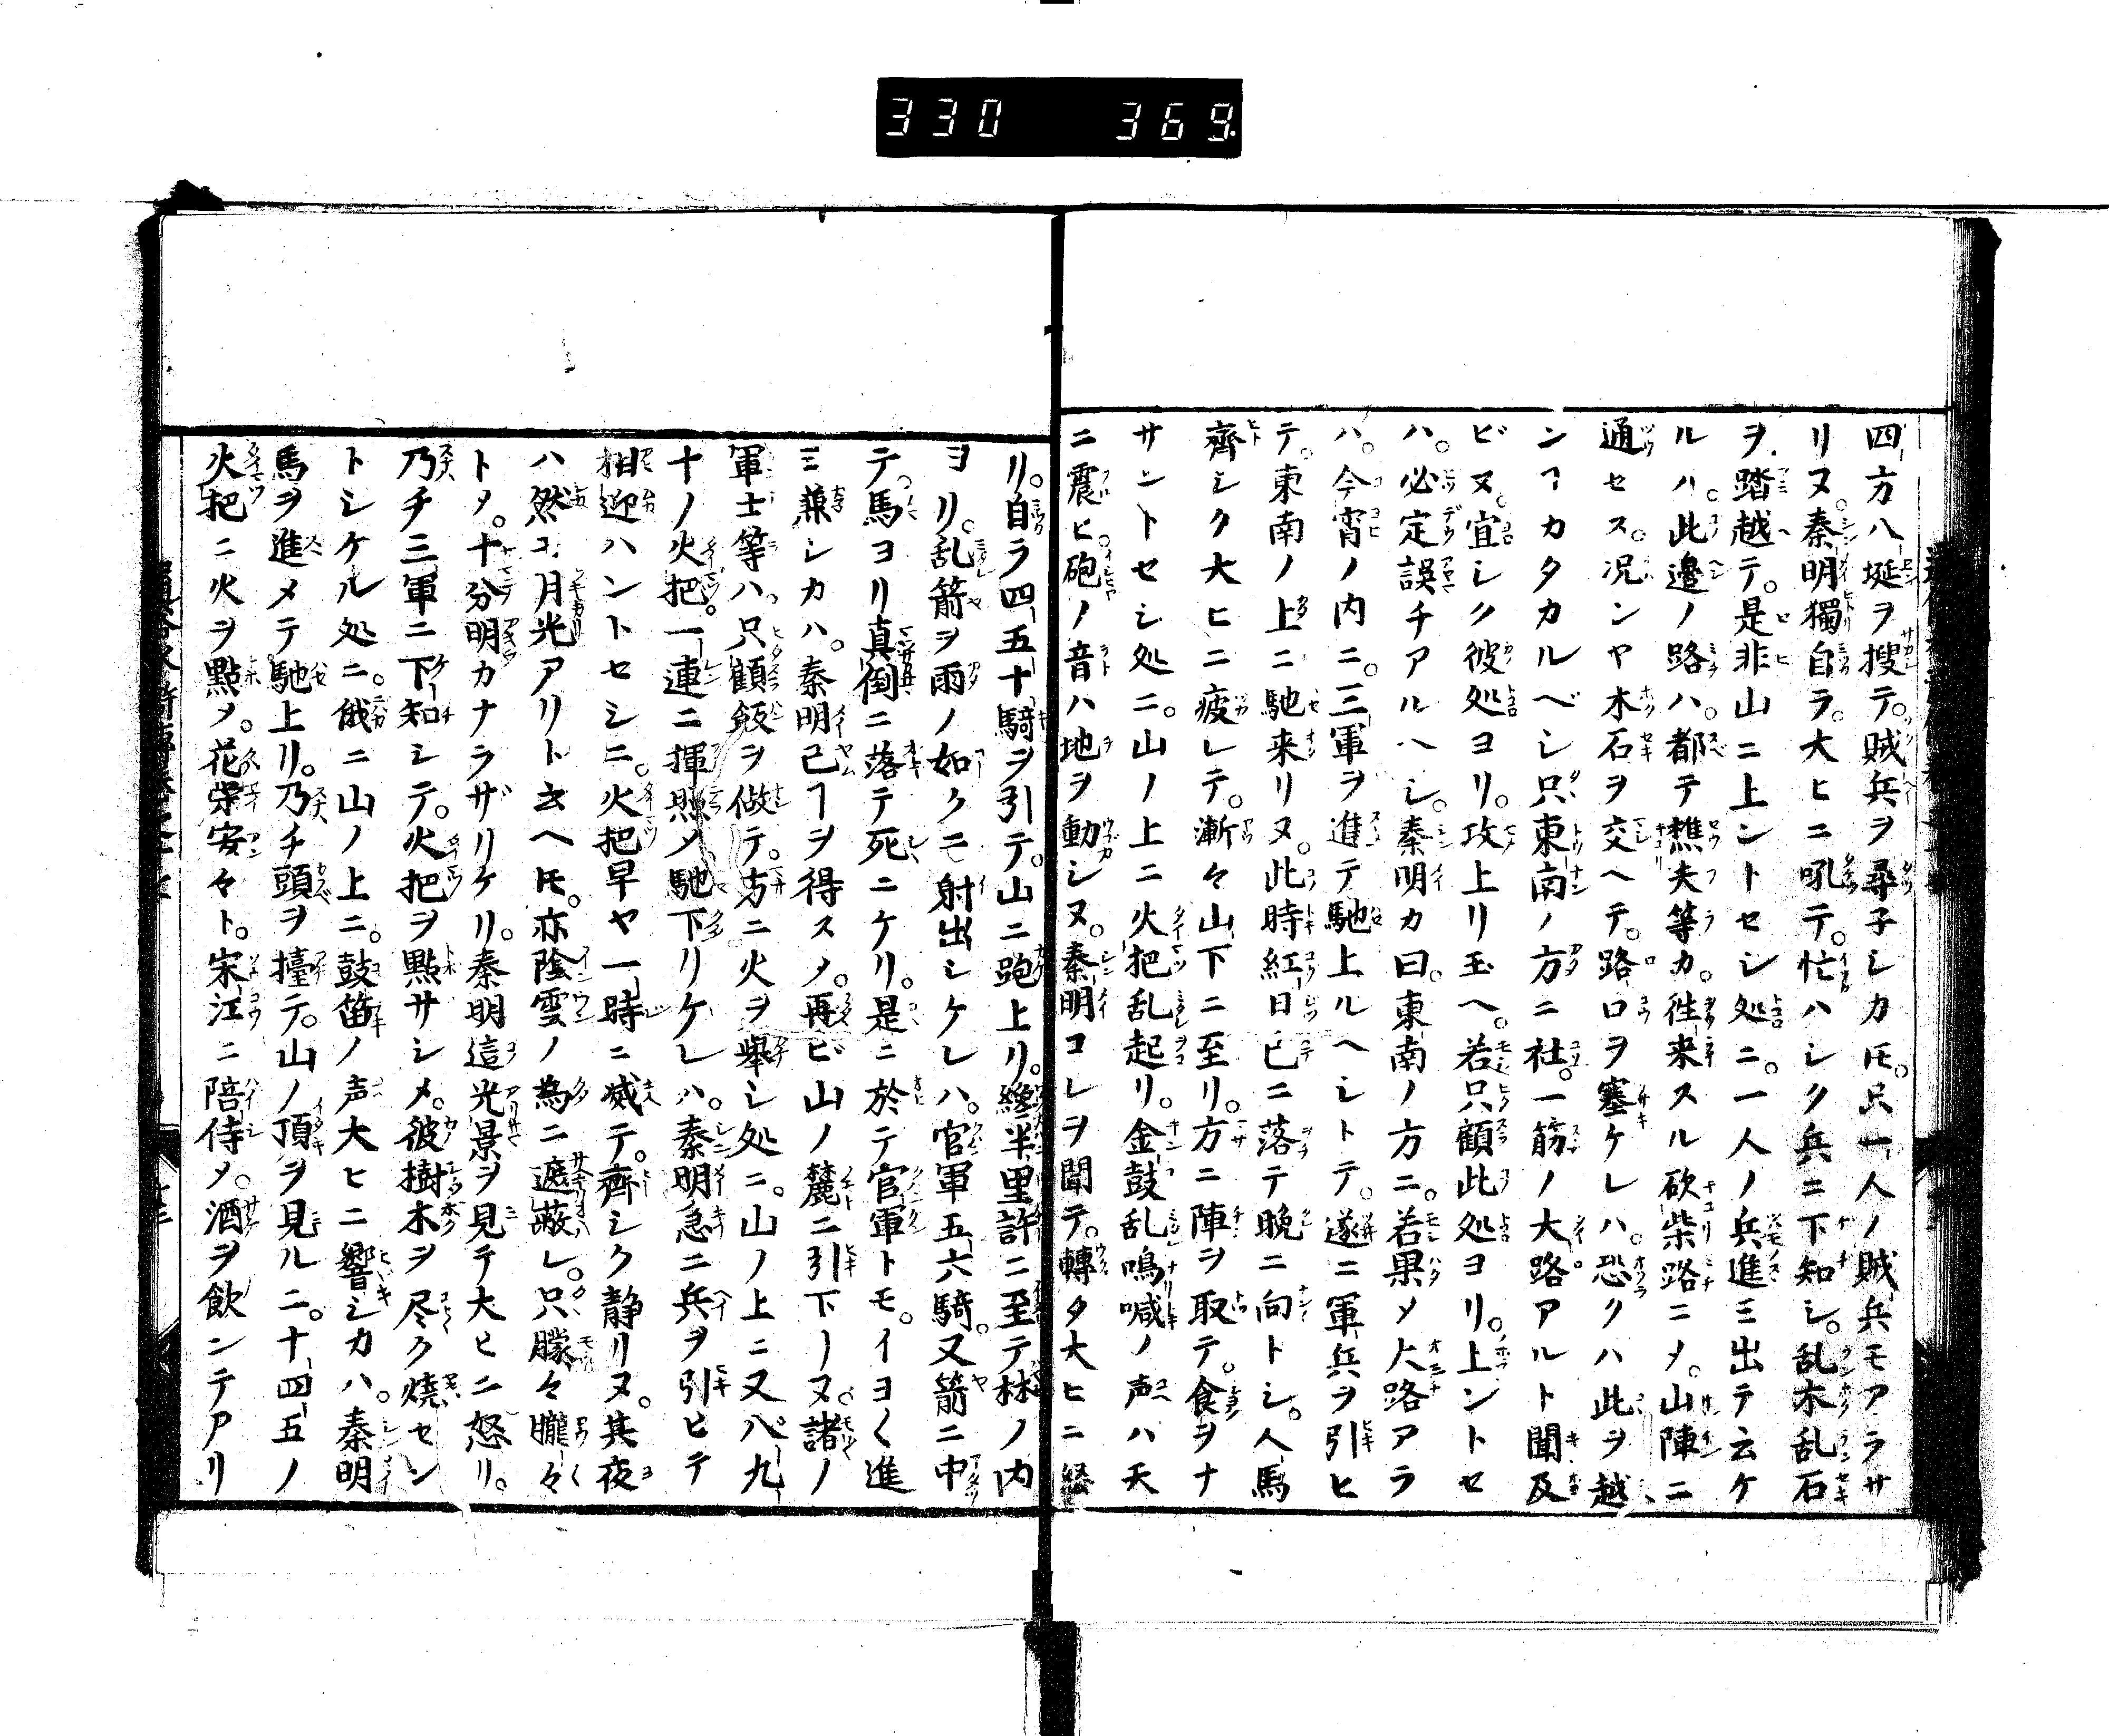 330 369.
四方八埏ヲ搜テ。賊兵ヲ尋子シカ𪜈。只一人ノ賊兵モアラサ
リヌ。秦明獨自ラ。大ヒニ吼テ。忙ハシク兵ニ下知シ。乱木乱石
ヲ踏越テ。是非山ニ上ントセシ処ニ。一人ノ兵進ミ出テ云ケ
ルハ。此邉ノ路ハ。都テ樵夫等カ。徃来スル砍柴路ニメ。山陣ニ
通セス。况ンヤ木石ヲ交ヘテ。路口ヲ塞ケレハ。恐クハ此ヲ越
ンヿカタカルベシ只東南ノ方ニ社。一筋ノ大路アルト聞及
ビヌ。宜シク彼処ヨリ。攻上リ玉ヘ。若只顧此処ヨリ。上ントセ
ハ。必定誤チアルヘシ。秦明カ曰。東南ノ方ニ。若果メ大路アラ
ハ。今宵ノ内ニ。三軍ヲ進テ馳上ルヘシトテ。遂ニ軍兵ヲ引ヒ
テ。東南ノ上ニ馳来リヌ。此時紅日已ニ落テ晩ニ向トシ。人馬
齊シク大ヒニ疲レテ。漸々山下ニ至リ。方ニ陣ヲ取テ。食ヲナ
サントセシ処ニ。山ノ上ニ火把乱起リ。金鼓乱鳴喊ノ声ハ天
ニ震ヒ砲ノ音ハ地ヲ動シヌ。秦明コレヲ聞テ。轉タ大ヒニ
リ。自ラ四五十騎ヲ引テ。山ニ跑上リ。纔半里許ニ至テ林ノ内
ヨリ。乱箭ヲ雨ノ如クニ射出シケレハ。官軍五六騎。又箭ニ中
テ。馬ヨリ真倒ニ落テ死ニケリ。是ニ於テ官軍トモ。イヨ〱進
ミ兼シカハ。秦明已ヿヲ得スメ。再ビ山ノ麓ニ引下ーヌ諸ノ
軍士等ハ只顧飯ヲ做テ。方ニ火ヲ擧シ処ニ。山ノ上ニ又八九
十ノ火把。一連ニ揮照メ馳下リケレハ。秦明急ニ兵ヲ引ヒテ
相迎ハントセシニ。火把早ヤ一時ニ滅テ。齊シク静リヌ。其夜
ハ然モ月光アリト云ヘ𪜈。亦陰雲ノ為ニ遮蔽レ。只朦々朧々
トメ。十分明カナラザリケリ。秦明這光景ヲ見テ大ヒニ怒リ。
乃チ三軍ニ下知シテ。火把ヲ點サシメ。彼樹木ヲ尽ク燒セン
トシケル処ニ。俄ニ山ノ上ニ。鼓笛ノ声大ヒニ響シカハ。秦明
馬ヲ進メテ馳上リ。乃チ頭ヲ擡テ。山ノ頂ヲ見ルニ。十四五ノ
火把ニ火ヲ點メ。花榮安々ト。宋江ニ陪侍メ。酒ヲ飲ンテアリ